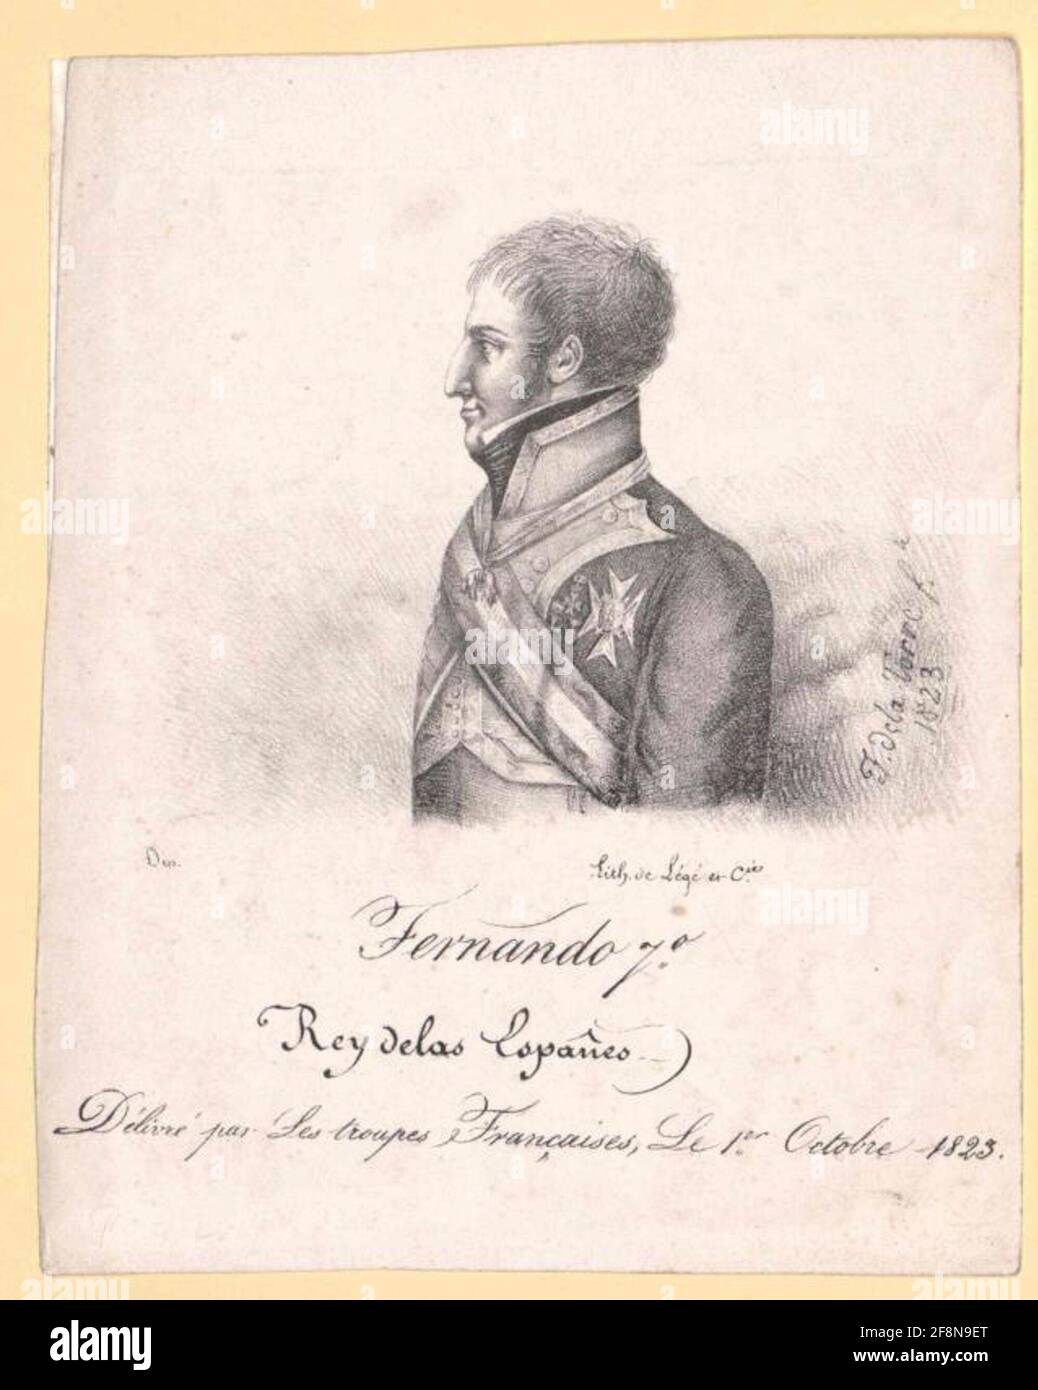 F. de la Torre f.
1823
Dep.
Lith. de Légé et C.ie
Fernando 7.º
Rey de las Españes
Délivré par Les troupes Françaises, Le 1.er Octobre 1823.
alamy
Image ID: 2F8N9ET
www.alamy.com